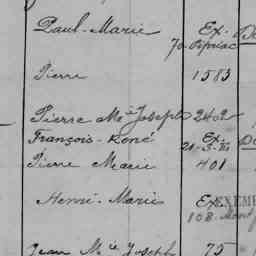 Paul-Marie Ex.
70 Pipriac
Pierre 1583
Pierre Mie Joseph 2402
François-René Ex.
Pierre Marie 401
Henri-Marie Ex.
EXEM
108
Jean Mie Joseph 75